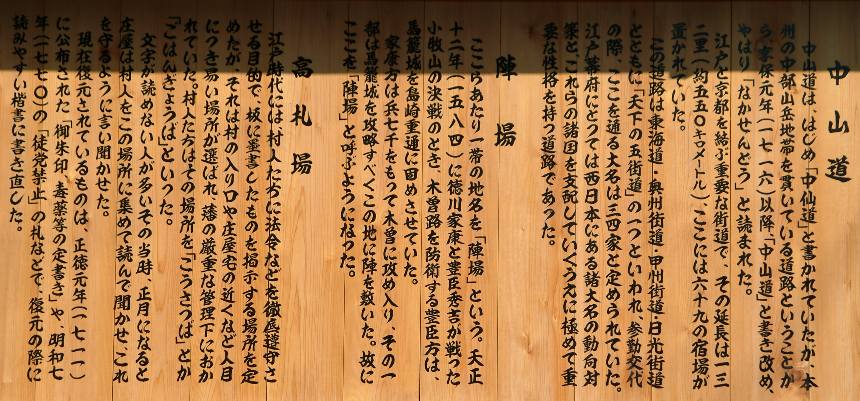 中山道
中山道は、はじめ「中仙道」と書かれていたが、本
州の中部山岳地帯を貫いている道路ということか
ら、享保元年(一七一六)以降、「中山道」と書き改め、
やはり「なかせんどう」と読まれた。
江戸と京都を結ぶ重要な街道で、その延長は一三
二里(約五五〇キロメートル)、ここには六十九の宿場が
置かれていた。
この道路は東海道・奥州街道・甲州街道・日光街道
とともに「天下の五街道」の一つといわれ、参勤交代
の際、ここを通る大名は三四家と定められていた。
江戸幕府にとっては西日本にある諸大名の動向対
策とこれらの諸国を支配していくうえに極めて重
要な性格を持つ道路であった。
陣場
ここらあたり一帯の地名を「陣場」という。天正
十二年(一五八四)に徳川家康と豊臣秀吉が戦った
小牧山の決戦のとき、木曽路を防衛する豊臣方は、
馬籠城を島崎重通に固めさせていた。
家康方は兵七千をもって木曽に攻め入り、その一
部は馬籠城を攻略すべくこの地に陣を敷いた。故に
ここを「陣場」と呼ぶようになった。
高札場
江戸時代には、村人たちに法令などを徹底遵守さ
せる目的で、板に墨書したものを掲示する場所を定
めたが、それは村の入り口や庄屋宅の近くなど人目
につき易い場所が選ばれ、藩の厳重な管理下におか
れていた。村人たちはその場所を「こうさつば」とか
「ごはんぎょうば」といった。
文字が読めない人が多いその当時、正月になると
庄屋は村人をこの場所に集めて読んで聞かせ、これ
を守るように言い聞かせた。
現在復元されているものは、正徳元年(一七一一)
に公布された「御朱印、毒薬等の定書き」や、明和七
年(一七七〇)の「徒党禁止」の札などで、復元の際に
読みやすい楷書に書き直した。